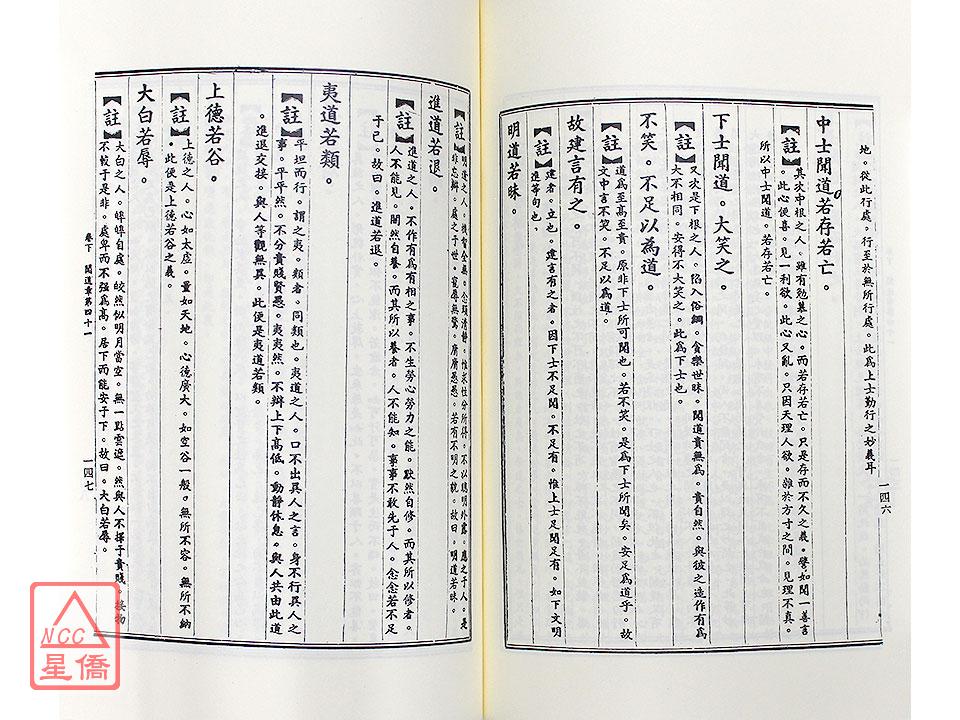 地。從此行處。行至於無所行處。此為上士勤行之妙義耳
中士聞道若存若亡。
【註】其次中根之人。雖有勉慕之心。而若存若亡。只是存而不久之義。譬如聞一善言
。此心便喜。見一利欲。此心又亂。只因天理人欲。雜於方寸之間。見理不真。
所以中士聞道。若存若亡。
下士聞道。大笑之。
【註】又次是下根之人。陷入俗網。貪樂世昧。聞道貴無為。貴自然。與彼之造作有為
大不相同。安得不大笑之。此為下士也。
不笑。不足以為道。
【註】道為至高至貴。原非下士所可聞也。若不笑。是為下士所聞矣。安足為道乎。故
文中言不笑。不足以為道。
故建言有之。
【註】建者。立也。建言有之者。因下士不足聞。不足有。惟上士足聞足有。如下文明
。進等句也。
明道若昧。
一四六
【註】明達之人。機智全無。念頭清靜。惟求性分所得。不以聰明外露。應之于人。是
非忘辯。處之于世。寵辱無驚。若有不明之貌。故曰。明道若昧。
進道若退。
【註】進道之人。不作有為有相之事。不生勞心勞力之能。默然自修。而其所以修者。
人不能見。闇然自養。而其所以養者。人不能知。事事不敢先于人。念念若不足
于己。故曰。進道若退。
夷道若纇。
【註】平坦而行。謂之夷。類者。同類也。夷道之人。口不出異人之言。身不行異人之
事。平平然。不分貴賤賢愚。夷夷然。不辯上下高低。動靜休息。與人共由此道
。進退交接。與人等觀無異。此便是夷道若類。
上德若谷。
【註】上德之人。心如太虛。量如天地。心德廣大。如空谷一般。無所不容。無所不納
。此便是上德若谷之義。
大白若辱。
【註】大白之人。皞皞自處。皎然似明月當空。無一點雲遮。然與人不擇于貴賤。接物
不較于是非。處卑而不強為高。居下而能安于下。故曰。大白若辱。
卷下 聞道章第四十一
一四七
NCC
星僑